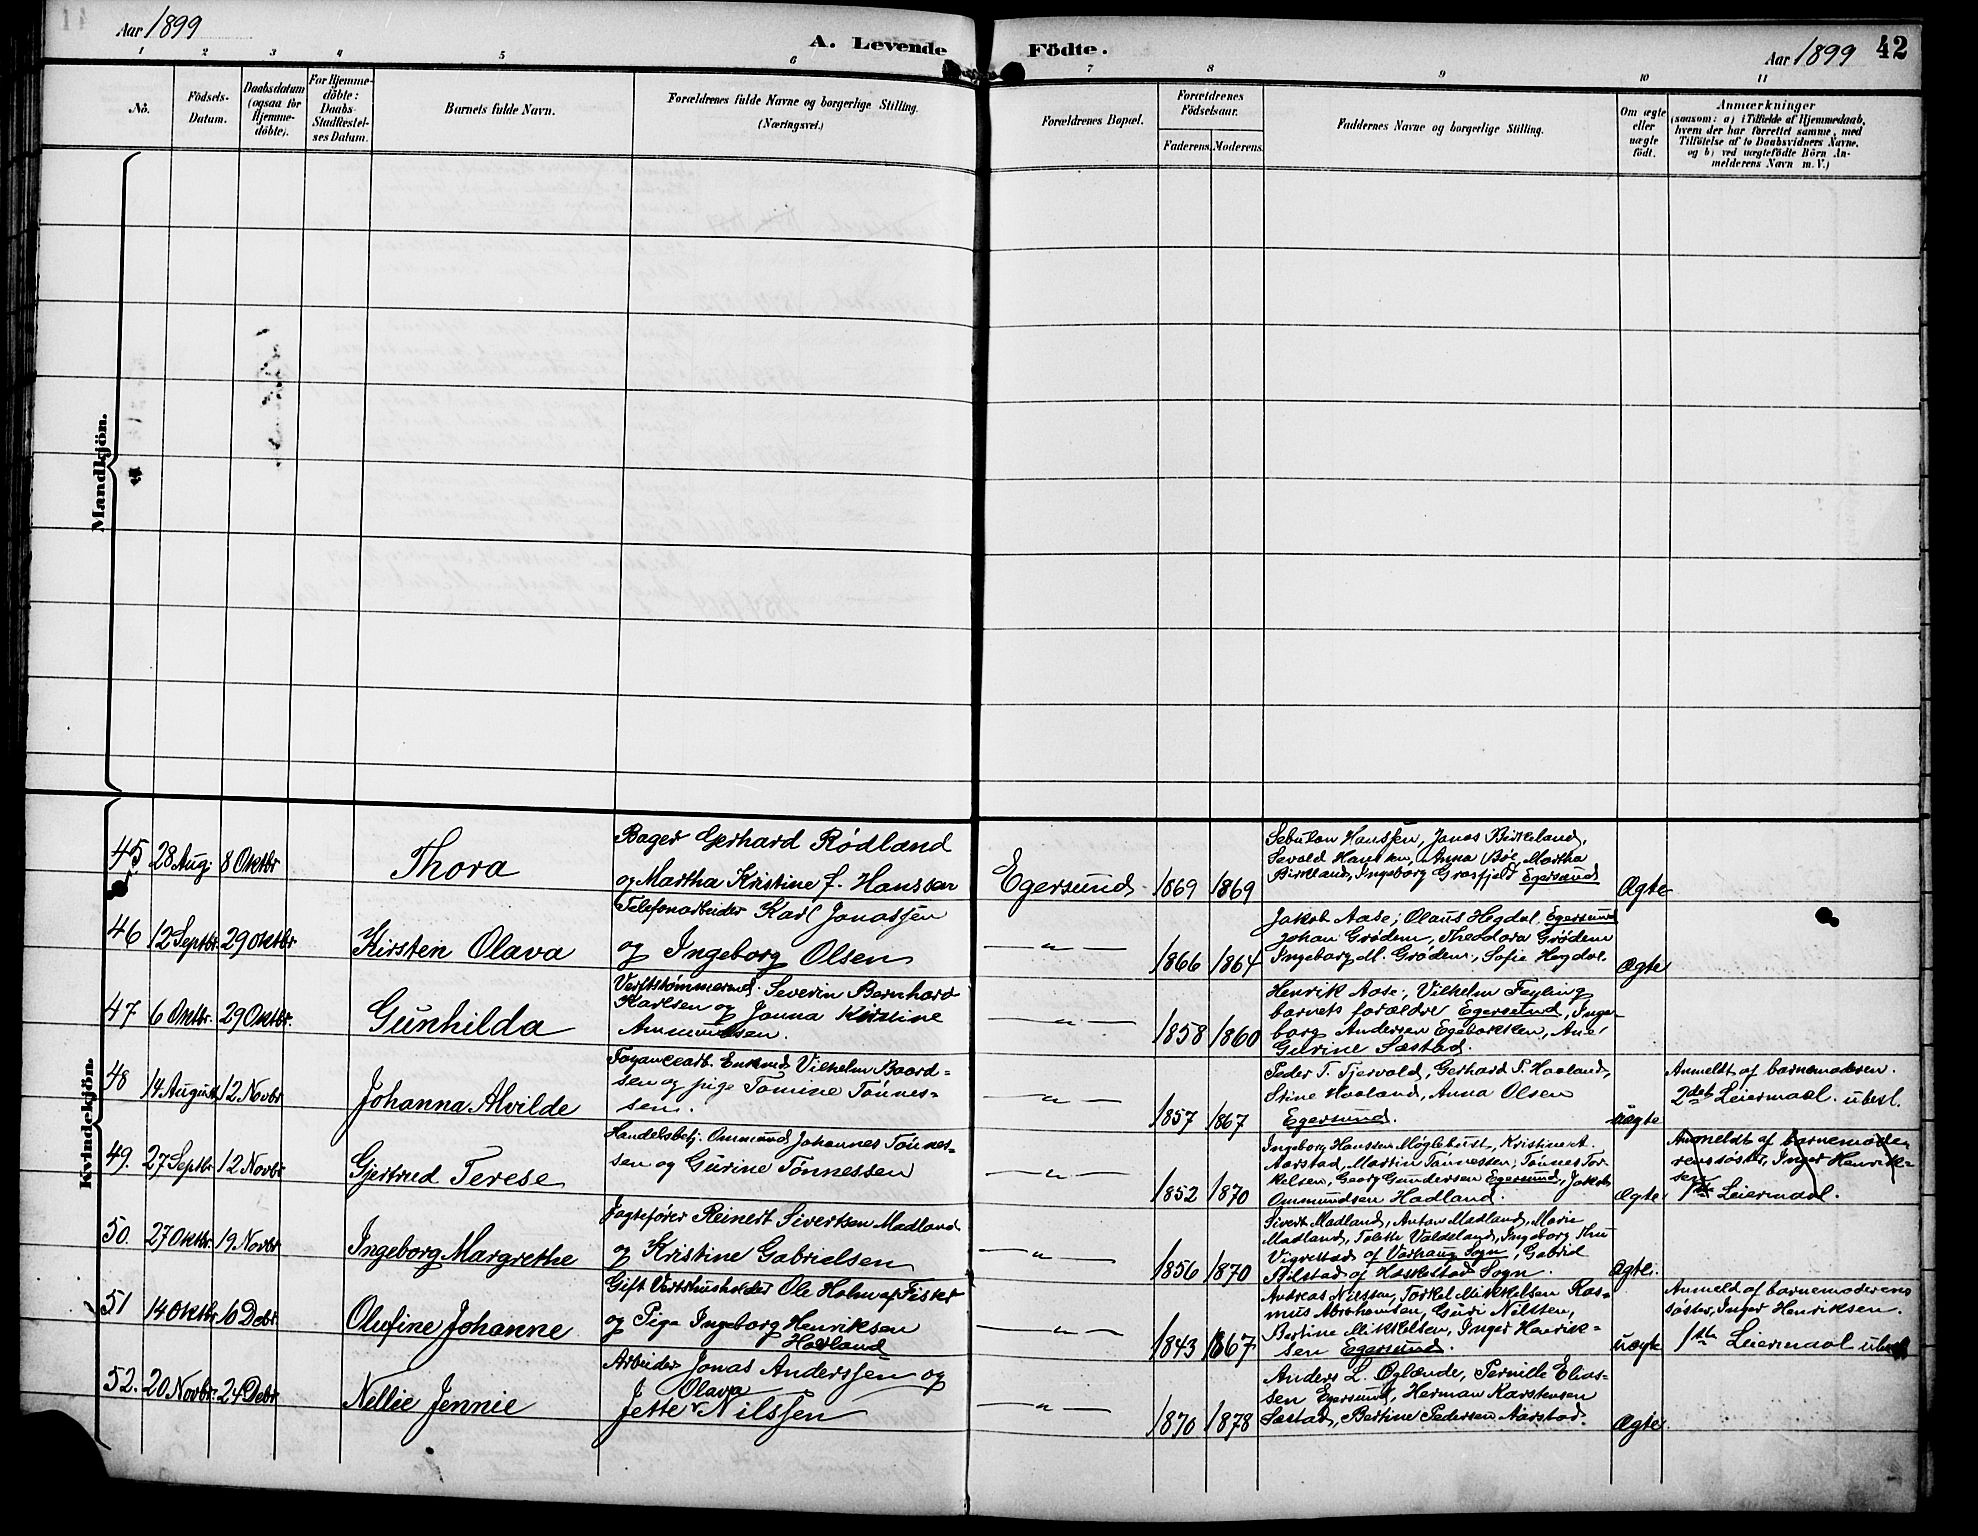 Aar 1899
A. Levende Födte.
Aar 1899 42
1 2 3 4 5 6 7 8 9 10 11
No.
Födsels-
Datum.
Daabsdatum
(ogsaa for
Hjemme-
döbte).
For Hjemme-
döbte:
Daabs-
Stadfæstel-
ses Datum.
Barnets fulde Navn.
Forældrenes fulde Navne og borgerlige Stilling.
(Næringsvei.)
Forældrenes Bopæl.
Forældrenes
Födselsaar.
Faderens. Moderens.
Faddernes Navne og borgerlige Stilling.
Om ægte
eller
uægte
födt.
Anmærkninger
(saasom: a) i Tilfælde af Hjemmedaab,
hvem der har forrettet samme, med
Tilföielse af to Daabsvidners Navne,
og b) ved uægtefödte Börn An-
melderens Navn m. V.)
Mandkjön.
Kvindekjön.
45 28 Aug. 8 Oktbr
Thora
Bager Gerhard Rödland
og Martha Kristine f. Hanssen
Egersund 1869 1869
Sebulon Hanssen, Jonas Birkeland,
Sevald Hanssen, Anna Böe, Martha
Birkland, Ingeborg Grasfjeld Egersund
Ægte
46 12 Septbr. 29 Oktbr.
Kirsten Olava
Telefonarbeider Karl Jonassen
og Ingeborg Olsen
— " — 1866 1864
Jakob Aase, Olaus Hegdal, Egersund
Johan Grödem, Theodora Grödem
Ingeborg M. Grödem, Sofie Hegdal.
Ægte
47 6 Oktbr. 29 Oktbr.
Gunhilda
Verftstömmermd. Severin Bernhard
Karlsen og Janna Kirstine
Ammundsen.
— " — 1858 1860
Henrik Aase, Vilhelm Feyling
barnets forældre Egersund, Inge-
borg Andersen Egebakken, Ane
Gurine Sæstad.
48 14 August 12 Novbr
Johanna Alvilde
Fayancearb. Enkemd Vilhelm Baard-
sen og pige Tomine Tönnes-
sen.
— " — 1857 1867
Peder T. Tjervald, Gerhard P. Haaland,
Stine Haaland, Anna Olsen
Egersund.
uægte
Anmeldt af barnemoderen.
2det Leiermaal. ubesl.
49. 27 Septbr. 12 Novbr
Gjertrud Terese
Handelsbetj. Ommund Johannes Tönnes-
sen og Gurine Tönnessen
— " — 1852 1870
Ingeborg Hanssen Möglebust, Kristine A.
Aarstad, Martin Tönnessen, Tönnes Tor-
kelsen, Georg Gundersen Egersund, Jakob
Ommundsen Hadland.
Ægte
Anmeldt af barnemode-
rens söster, Inger Henrik-
sen
1ste Leiermaal.
50. 27 Oktbr. 19 Novbr
Ingeborg Margrethe
Jagtefører Reinert Sivertsen Madland
og Kristine Gabrielsen
— " — 1856 1870
Sivert Madland, Anton Madland, Marie
Madland, Tolette Valdeland, Ingeborg
Vigrestad af Varhaug Sogn, Gabriel
af Haskestad Sogn.
Ægte.
51 14 Oktbr 10 Debr
Olufine Johanne
Gift Vertshusholder Ole Holm af Fister
og Pige Ingeborg Henriksen
Hadland
— " — 1843 1867
Andreas Nilssen, Torkel Mikkelsen Ras-
mus Abrahamsen, Guri Nilssen,
Bertine Mikkelsen, Inger Henrik-
sen Egersund.
uægte
Anmeld af barnemoderens
söster, Inger Henriksen.
1ste Leiermaal
52. 20 Novbr. 24 Debr
Nellie Jennie
Arbeider Jonas Anderssen og
Olava
Jette Nilssen
— " — 1870 1878
Anders L. Öglænde, Pernille Elias-
sen Egersund, Herman Karstensen
Sæstad, Bertine Pedersen Aarstad.
Ægte